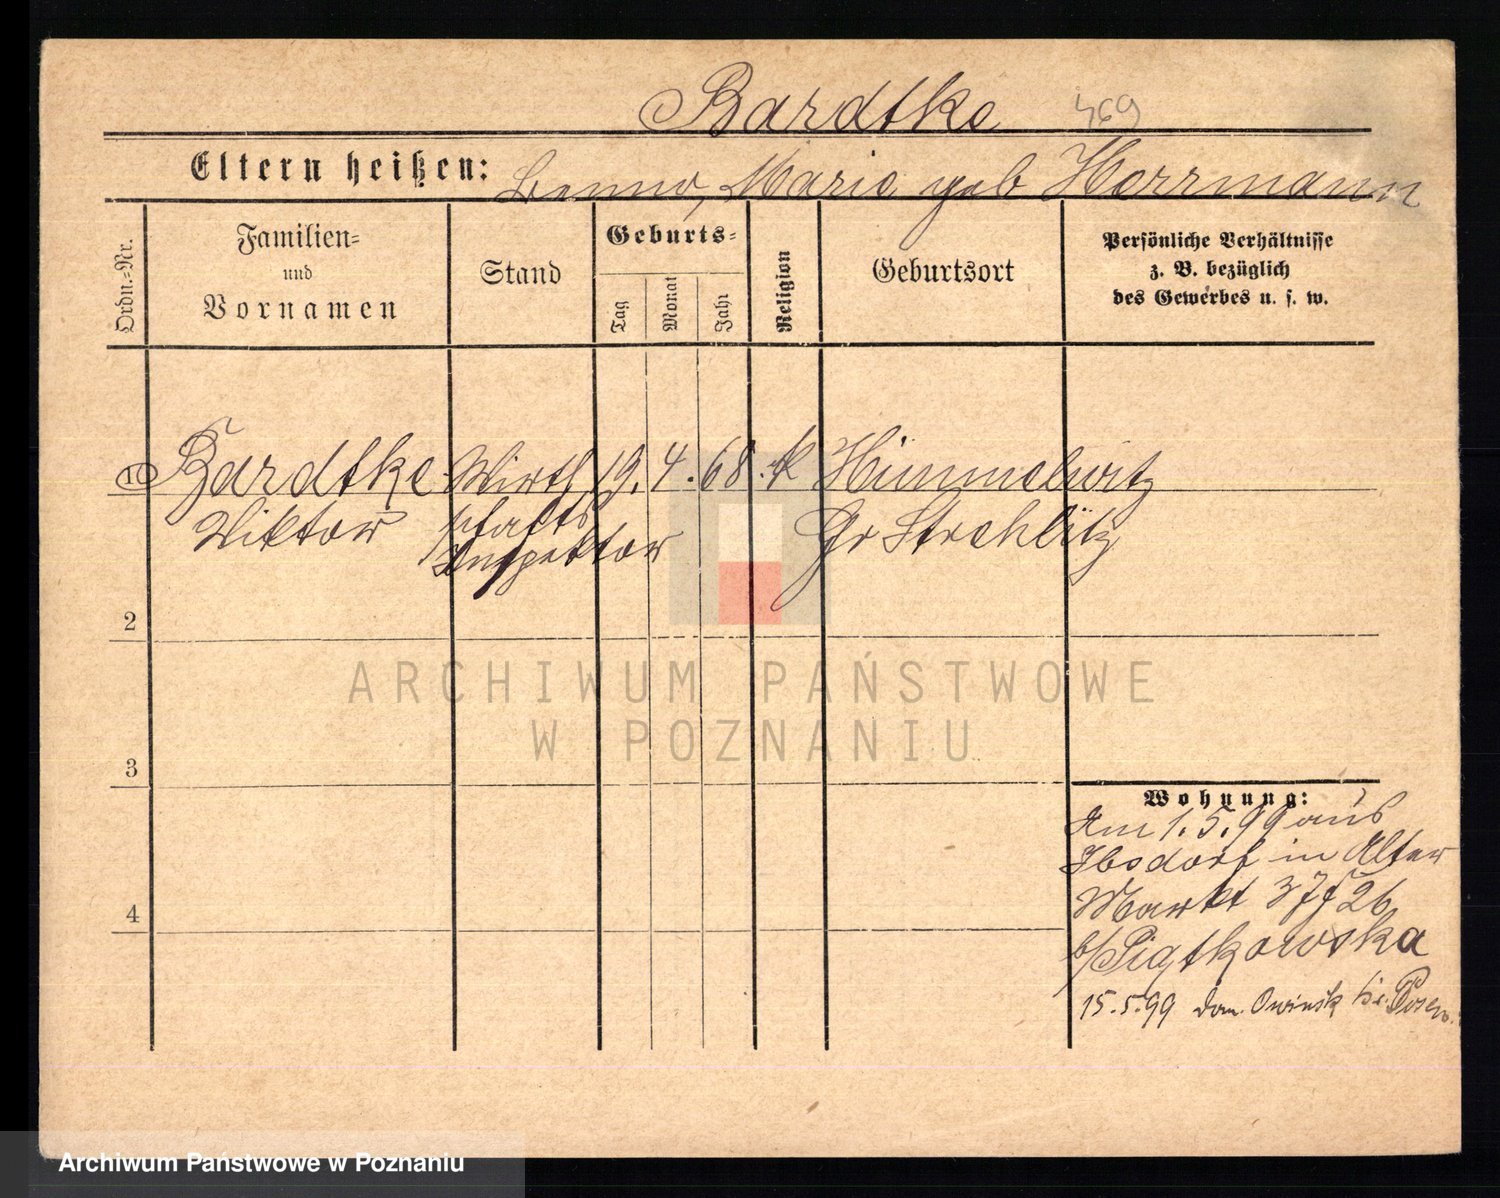 Bardtke 469
Eltern heißen: Benno, Marie geb Herrmann
Ordn.=Nr.
Familien=
und
Vornamen
Stand
Geburts=
Tag
Monat
Jahr
Religion
Geburtsort
Persönliche Verhältnisse
z. B. bezüglich
des Gewerbes u. s. w.
1 Bardtke Wirth 19. 4. 68. k Himmelwitz
Viktor schafts Gr Strehlitz
Inspektor
2
3
4
Wohnung:
Am 1.5.99 aus
in Alter
Markt 37
b/Piątkowska
15.5.99 Dom. Owinsk Posen.
ARCHIWUM PAŃSTWOWE
W POZNANIU
Archiwum Państwowe w Poznaniu